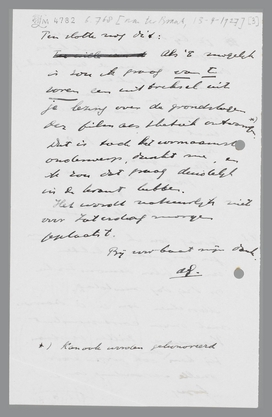 Ten slotte nog dit:
Als 't mogelijk
is zou ik graag van te
voren een uittreksel uit
je lezing over de grondslagen
der filmaesthetiek ontvangen *)
Dat is toch het voornaamste
onderwerp, dacht me, en
ik zou dat graag duidelijk
in de krant hebben.
Het wordt natuurlijk niet
vóór Zaterdag morgen
geplaatst.
Bij voorbaat mijn dank.
*) Kan ook worden gehonoreerd